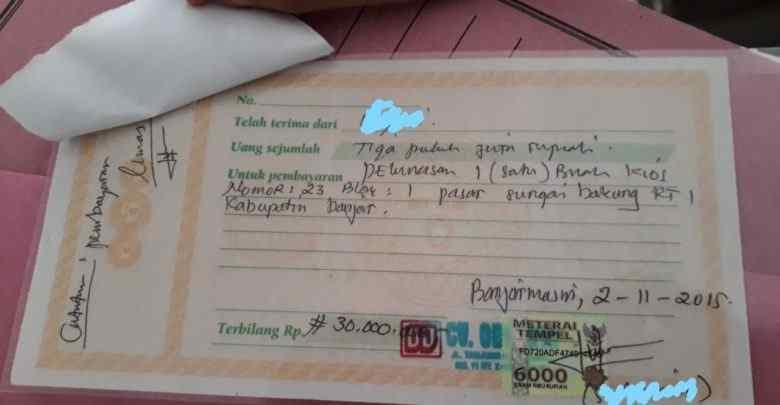 No.
Telah terima dari
Uang sejumlah Tiga puluh juta rupiah.
Untuk pembayaran pelunasan 1 (satu) Buah kios
Nomor : 23 Blok : 1 pasar sungai bakung RT 1
Kabupaten Banjar.
Banjarmasin, 2-11-2015.
Terbilang Rp # 30.000.
CV.
METERAI
TEMPEL
6000
ENAM RIBU RUPIAH
Catatan : pembayaran
lunas